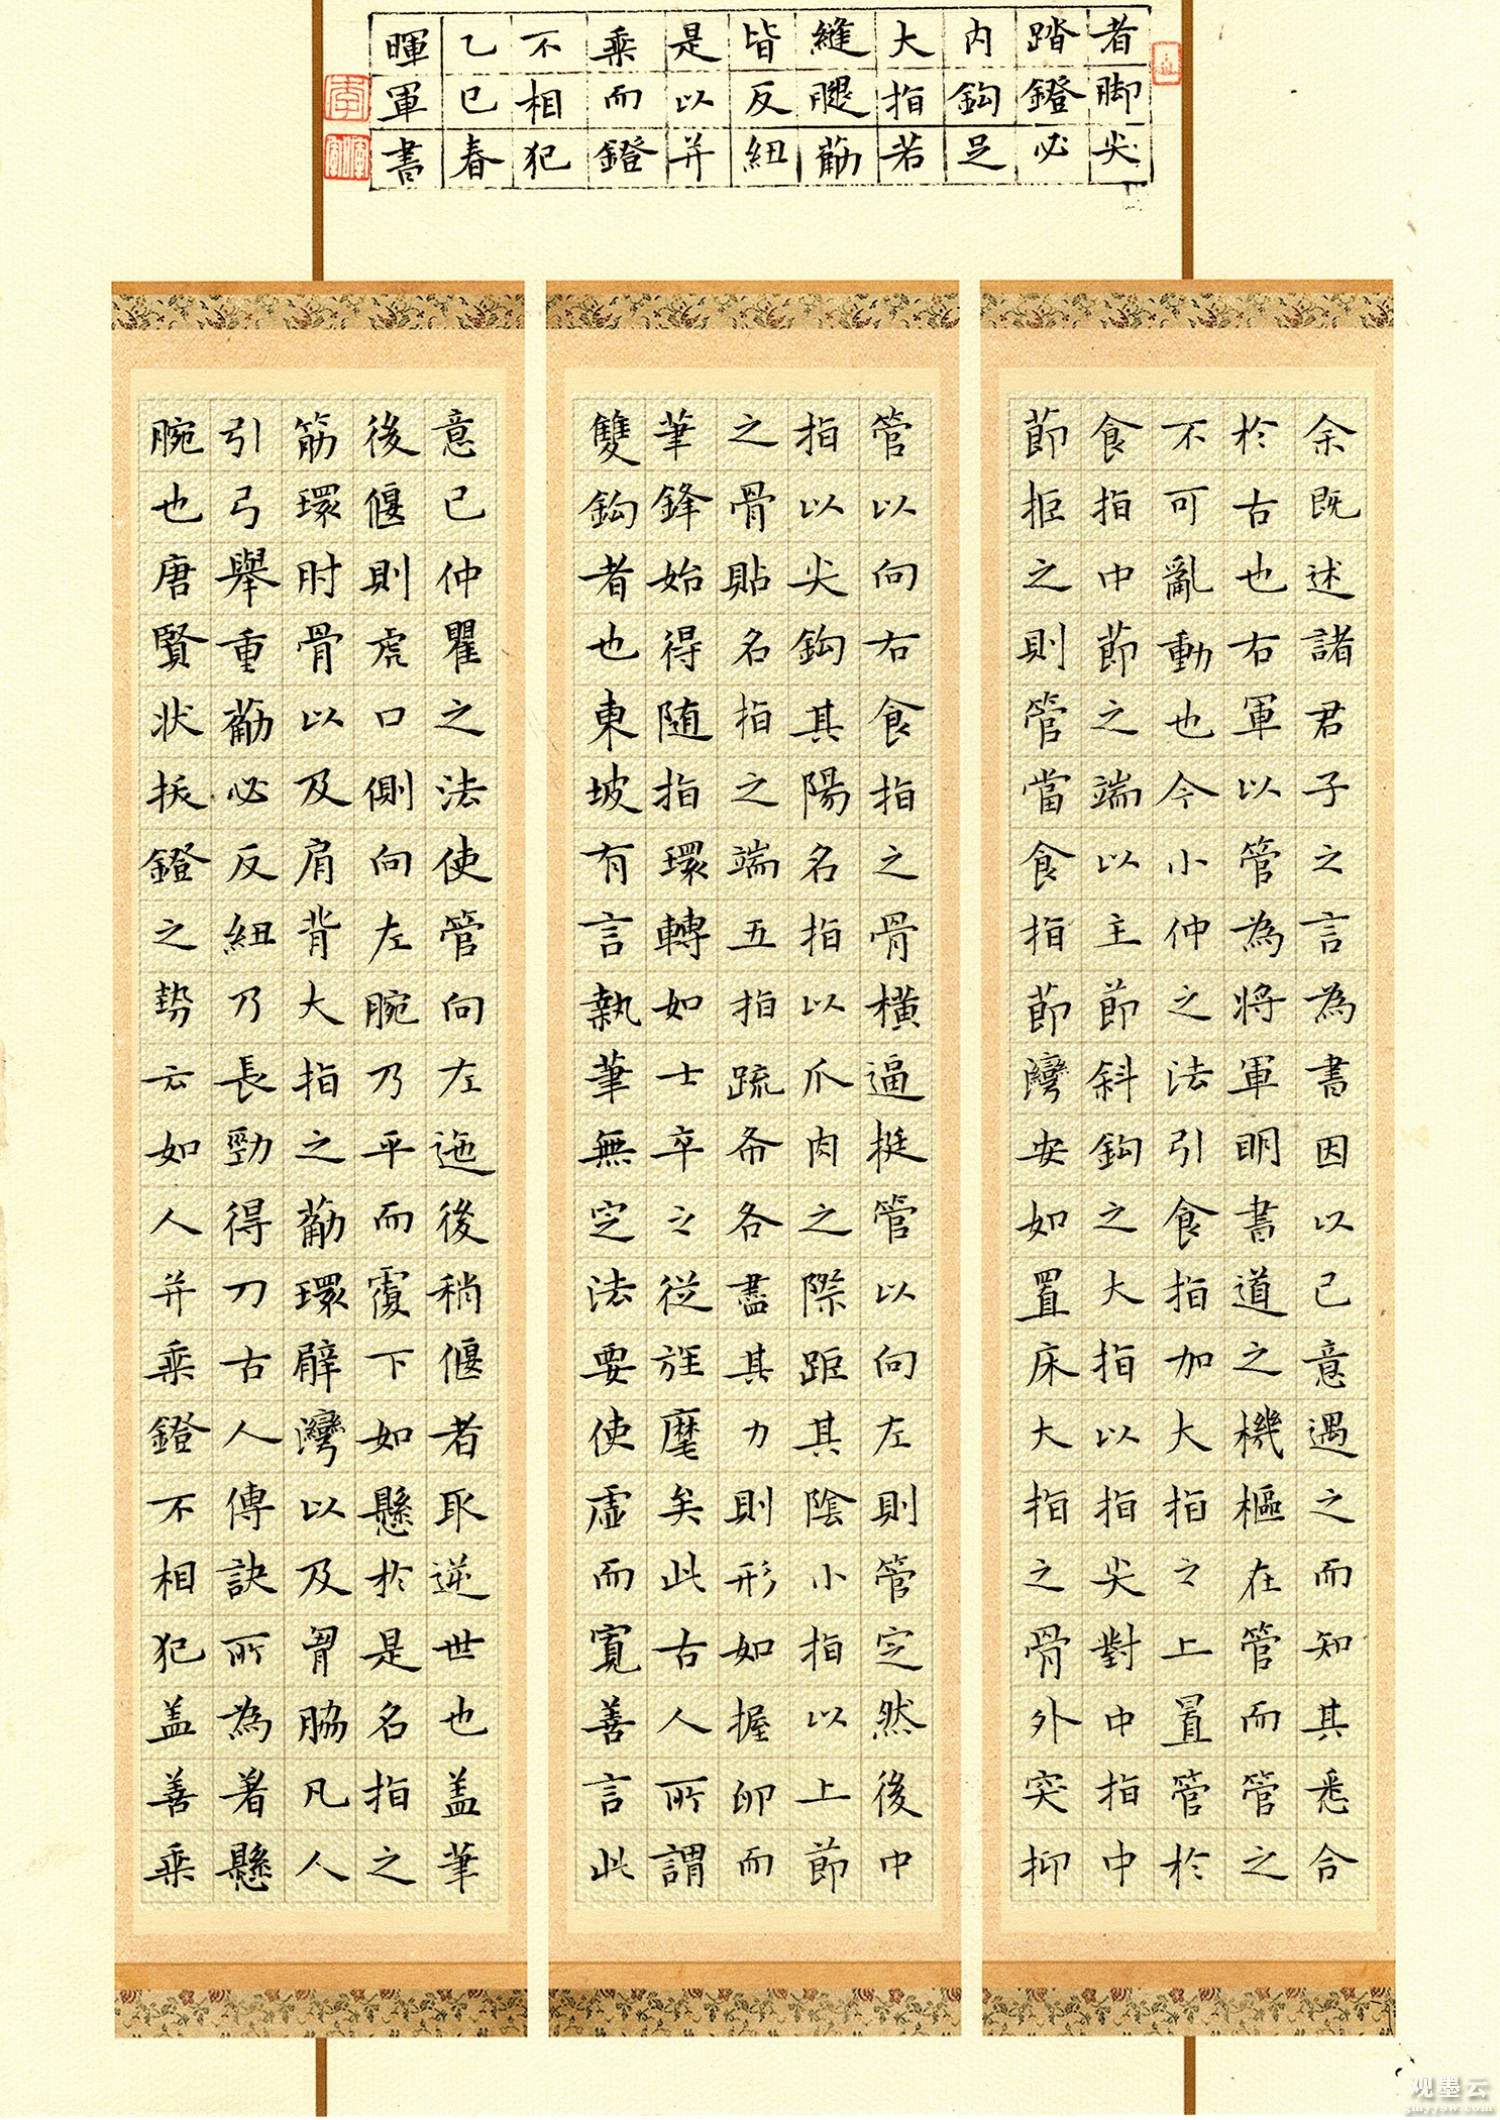 余既述諸君子之言為書因以己意遇之而知其悉合
於古也右軍以管為將軍明書道之機樞在管而管之
不可亂動也今小仲之法引食指加大指之上置管於
食指中節之端以主節斜鈎之大指以指尖對中指中
節拒之則管當食指節灣安如置床大指之骨外突抑
管以向右食指之骨橫逼挺管以向左則管定然後中
指以尖鈎其陽名指以爪肉之際距其陰小指以上節
之骨貼名指之端五指疏布各盡其力則形如握卵而
筆鋒始得随指環轉如士卒之從旌麾矣此古人所謂
雙鈎者也東坡有言執筆無定法要使虛而寬善言此
意已仲瞿之法使管向左迤後稍偃者取逆世也盖筆
後偃則虎口側向左腕乃平而覆下如懸於是名指之
筋環肘骨以及肩背大指之觔環臂灣以及胷脇凡人
引弓舉重觔必反紐乃長勁得刀古人傳訣所為著懸
腕也唐賢狀振鐙之勢云如人并乘鐙不相犯盖善乘
者脚尖
踏鐙必
内鈎足
大指若
縫腿觔
皆反紐
是以并
乘而鐙
不相犯
乙巳春
暉軍書
李
观墨云